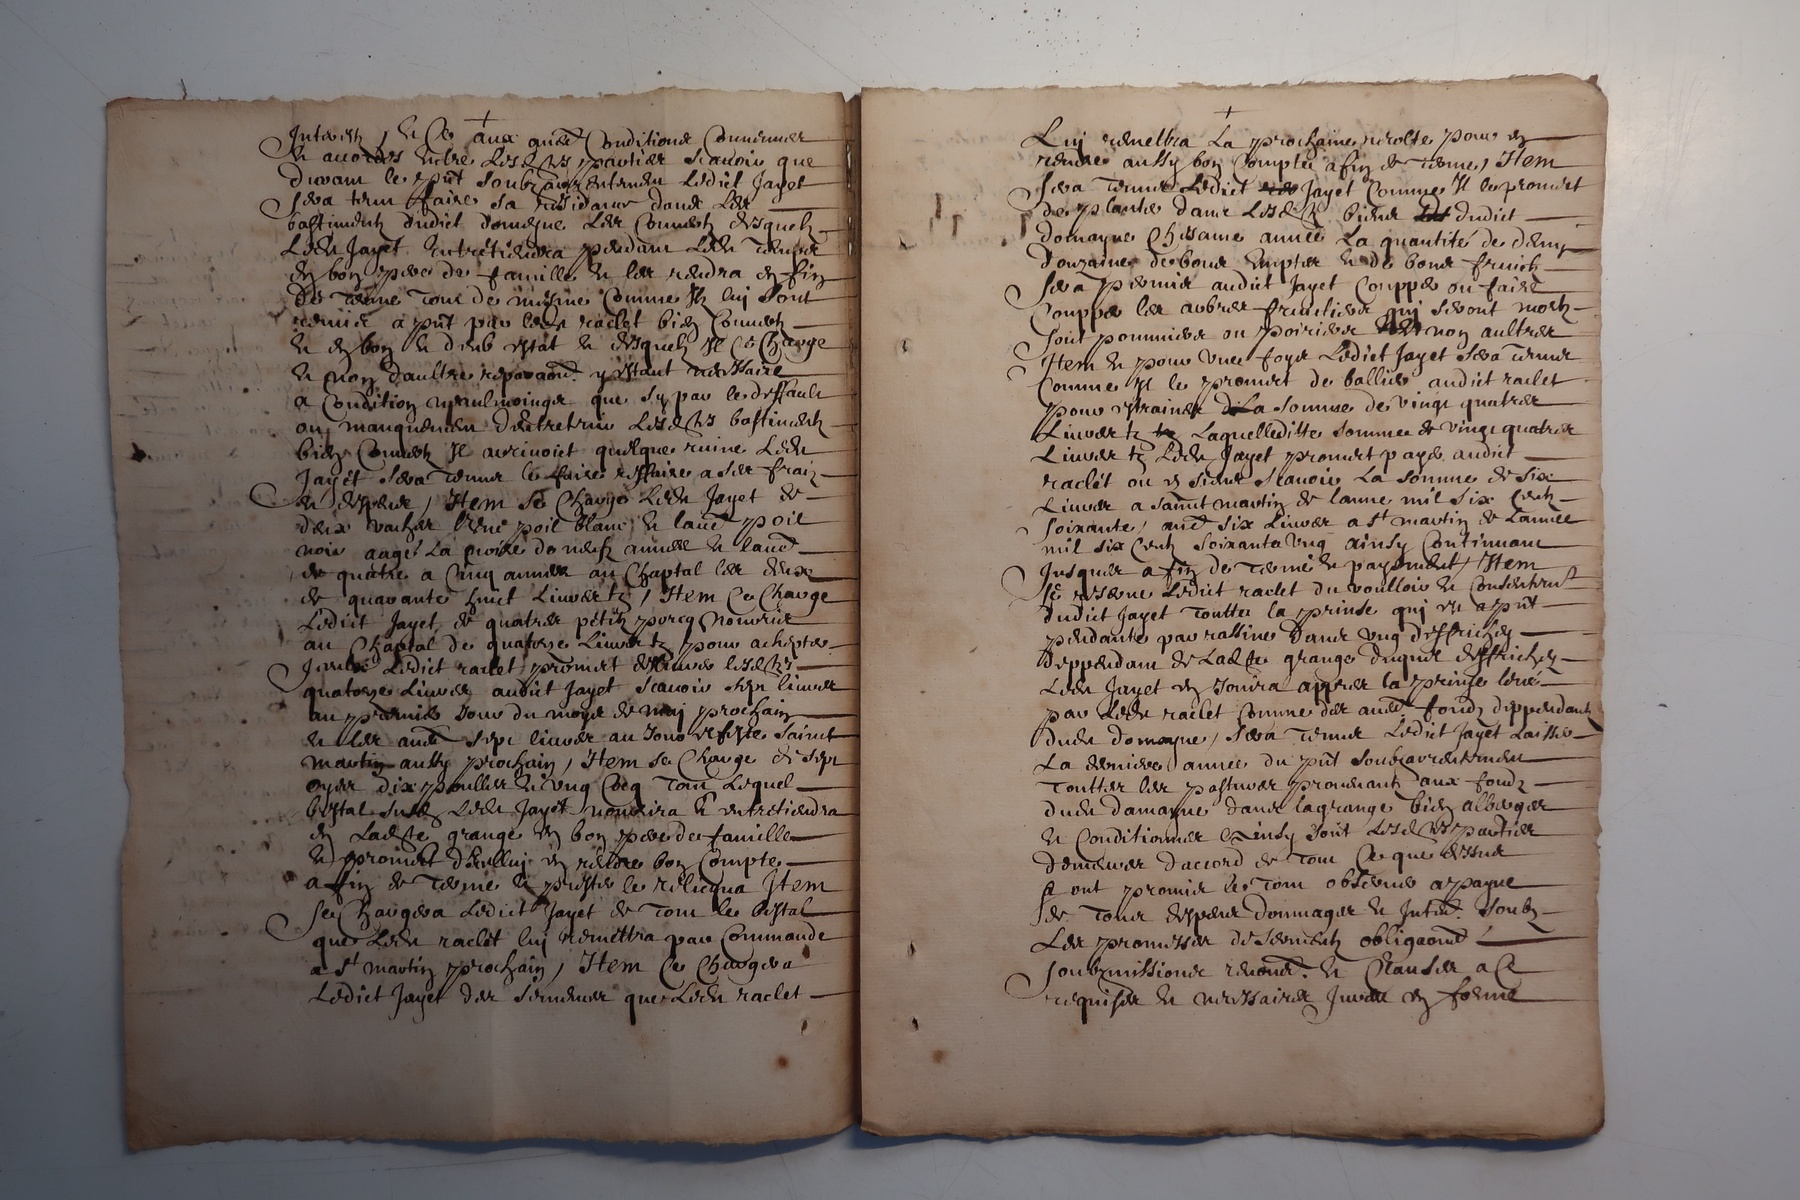 Interestz / Et Ce aux aultres Conditions Convenues
Et accordes entre Lesdites parties scavoir que
Durant le present soubzarrentement Ledict Jayet
sera tenu faire sa residance dans Les
bastiments dudict domeyne Les Couvertz desquelz
Ledit Jayet Entretiendra pendant Ledit terme
En bon pere de famille Et les rendra En fin
De terme tout de mesme Comme Ilz luy sont
remis a present par ledit raclet bien Couvertz
Et En bon Et deub estat Et desquelz Il Ce Charge
Et non daultre reparaons y estant necessaire
a Condition neaulmoinges que sy par le deffault
ou manquement dentretenir Lesdits bastimentz
bien Couvertz Il arrivoict quelque ruine Ledit
Jayet sera tenu le faire reffaire a ses fraiz
Et despens / Item se Charge Ledit Jayet de
deux vaches lune poil blanc Et laultre poil
noir aagé La noire de neufz annees Et laultre
de quatre a Cinq annees au Chaptal les deux
de quarante huict Livres tz / Item Ce Charge
Ledict Jayet de quatres petitz porcq Nourris
au Chaptal de quatorze Livres tz pour achepter
Iceulx Ledict raclet promect delivrer lesdites
quatorze Livres audict Jayet scavoir sept livres
au premier Jour du moys de may prochain
Et les aultres sept livres au Jour et feste Sainct
martin aussy prochain / Item se Charge de sept
oyes dix poulles Et ung Coq Tout Lequel
bestal susdit Ledit Jayet nourrira Et entretiendra
En Ladite grange En bon pere de famille
Et promect dIcelluy En rendre bon Compte
a fin de terme Et prester le relicqua Item
se Chargera Ledict Jayet de tout le bestal
que Ledit raclet luy remettra par Commande
a St martin prochain / Item Ce Chargera
Ledict Jayet des semences que Ledit raclet
Luy remettra La prochaine recolte pour En
rendre aussy bon Compte a fin de terme / Item
sera tenu Ledict Jayet Comme Il le promect
de planter dans Lesdits biens dudict
domayne Chesame année La quantité de demy
Douzaine de bons Emptes Et de bons fruictz
sera permis audict Jayet Coupper ou faire
Coupper les arbres fruictiers qui seront mortz
soit pommiers ou poiriers Et non aultres
Item Et pour une foys Ledict Jayet sera tenu
Comme Il le promect de ballier audict raclet
pour estraines La somme de vingt quatres
Livres tz Laquelleditte somme de vingt quatres
Livres tz Ledit Jayet promect payer audict
raclet ou En siens scavoir La somme de six
Livres a sainct martin de lanne mil six Centz
soixante / aultres six Livres a St martin de Lannee
mil six Centz soixante ung ainsy Continuant
Jusques a fin de terme Et payement / Item
se reserve Ledict raclet du voulloir Et Consentement
dudict Jayet toutte la prinse qui est a present
pendante par rassine Dans ung deffrichez
deppendant de Ladite grange duquel deffrichez
Ledit Jayet En Jouira appres la prinse levé
par Ledit raclet Comme des aultres fondz deppendants
dudit domayne / sera tenu Ledict Jayet Laisser
La derniere annee du present soubzarrentement
touttes les pastures provenantz aux fondz
dudit damayne dans la grange bien alberger
Et Conditionner Et Ainsy sont Lesdites parties
demeures daccord de tout Ce que dessus
Et ont promis le tout observer a payne
de tous despens dommages Et Interestz soubz
Les promesses de sermentz obligaons
soubzmissions renonciations Et Clauses a Ce
requises Et necessaires Jurees En forme